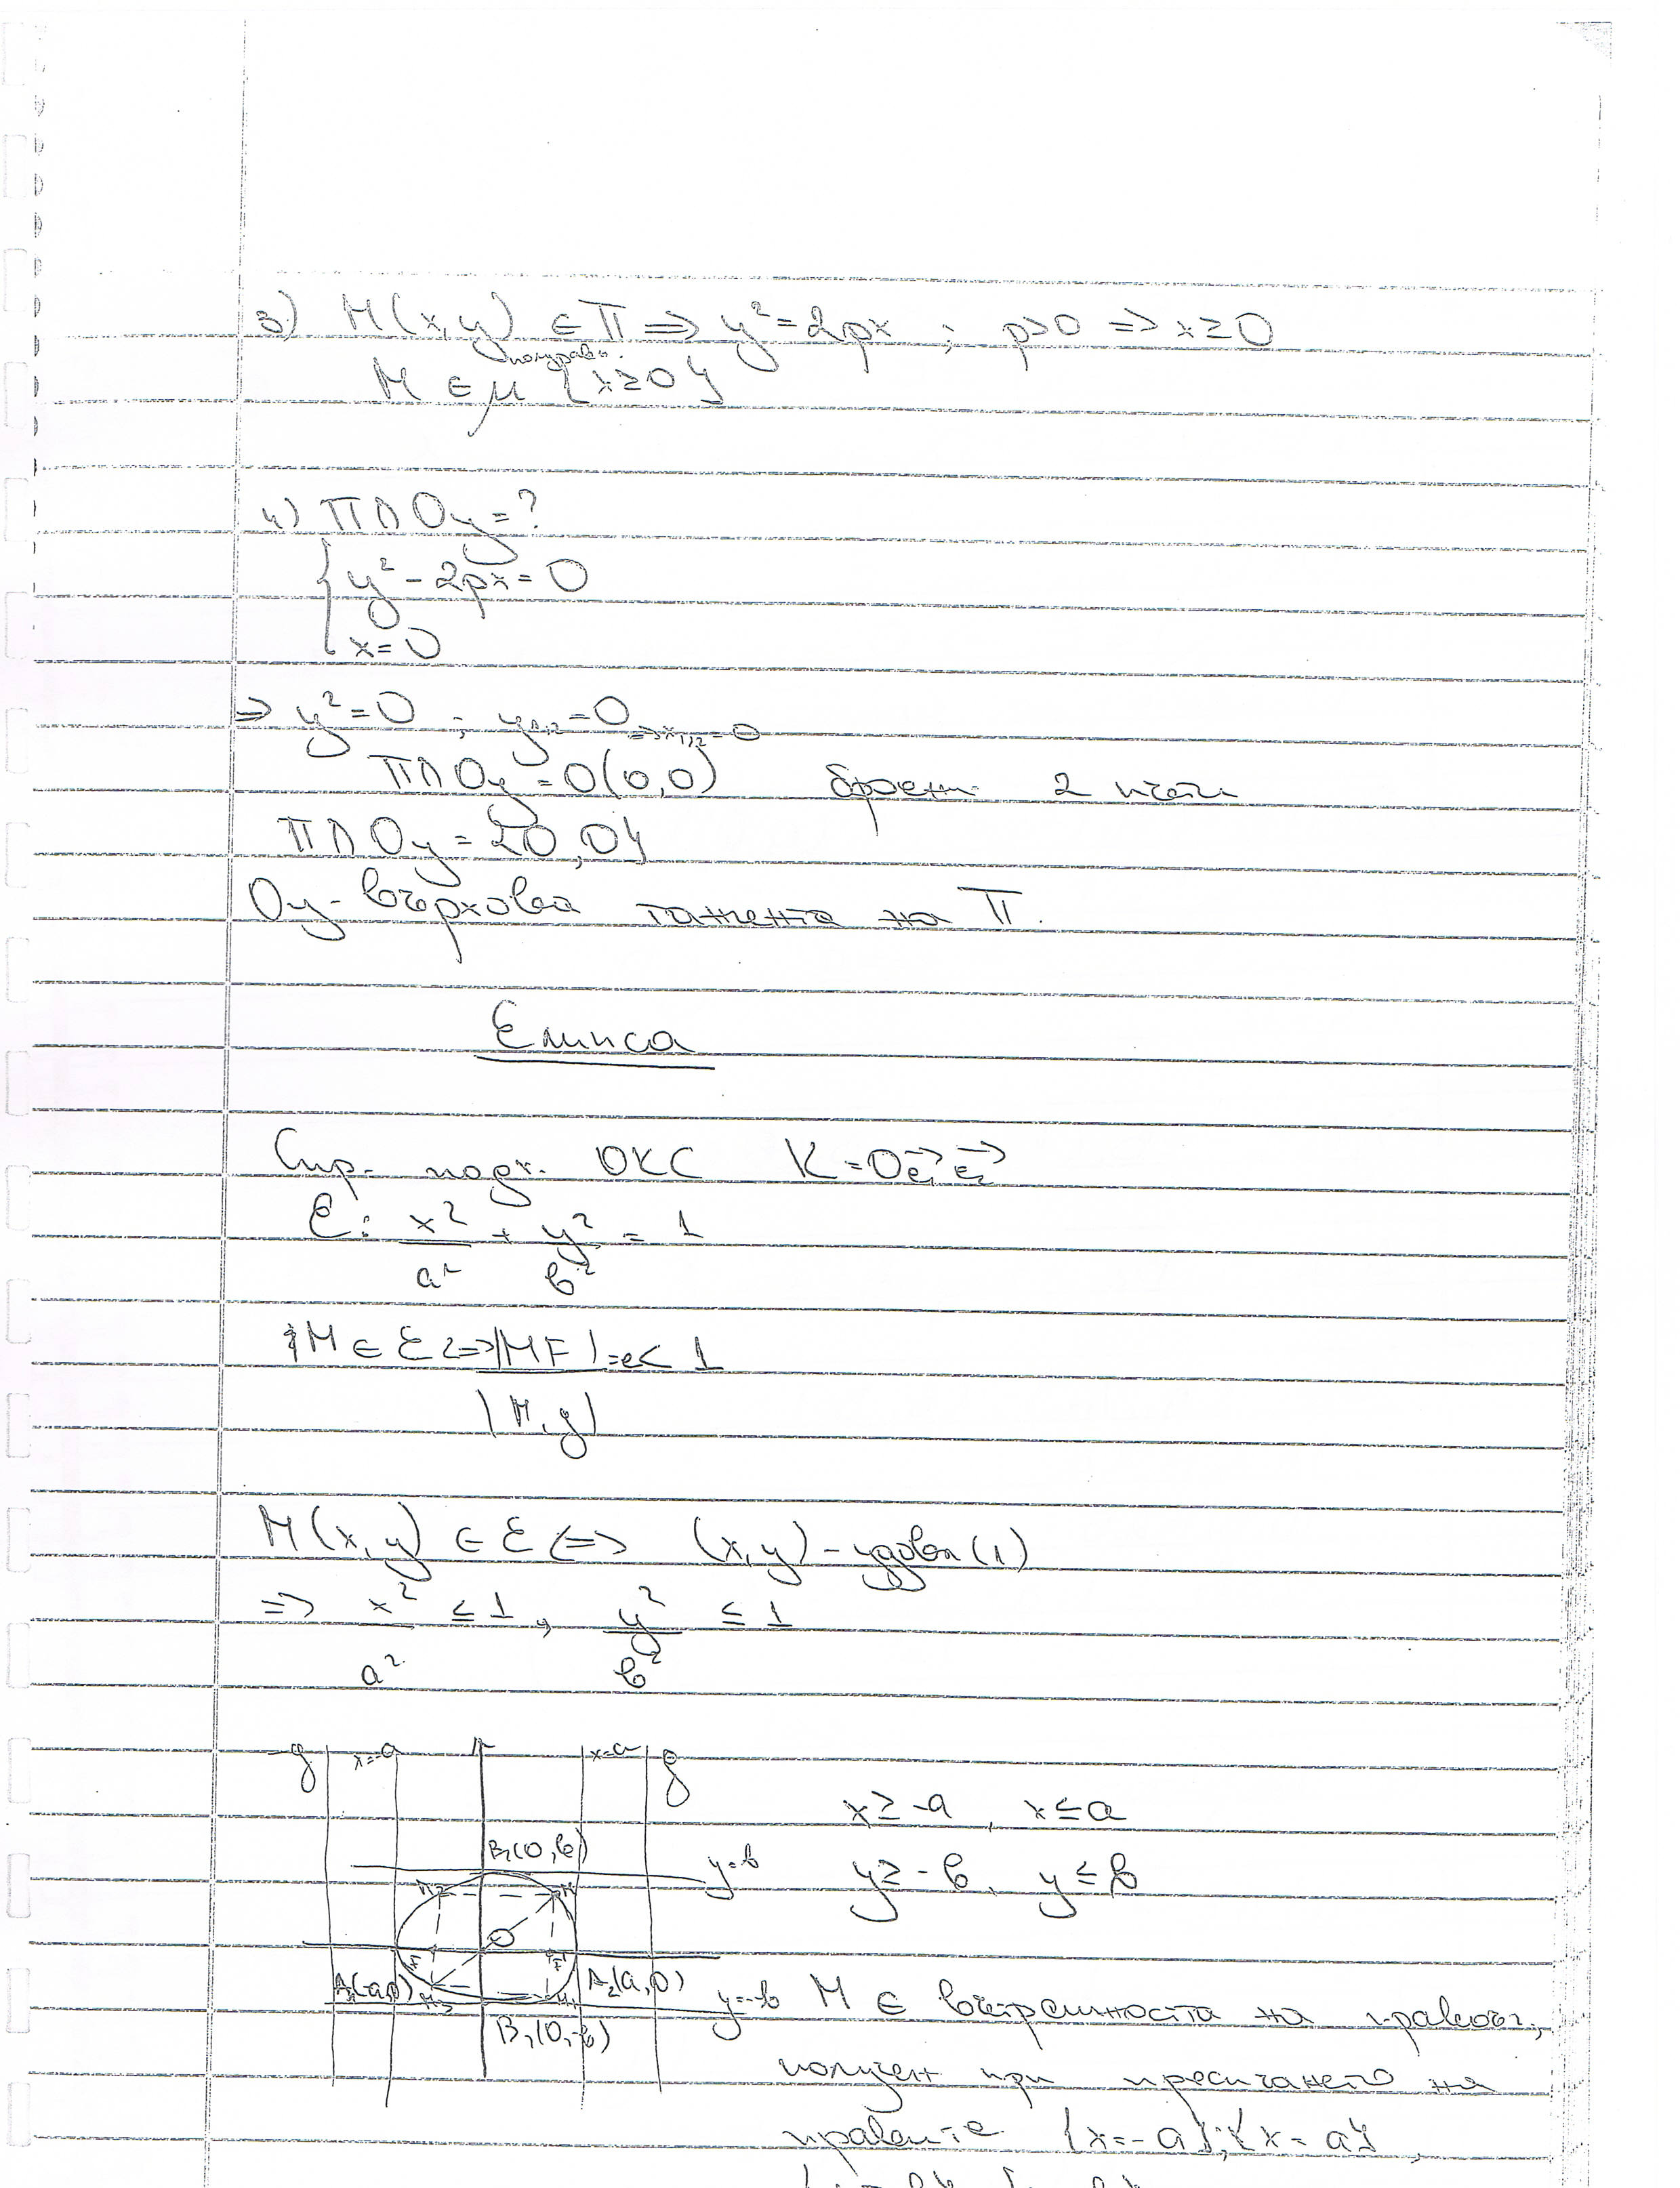 3) M(x,y) ∈ Π => y² = 2px ; p>0 => x≥0
полуравн.
M ∈ μ {x≥0}
4) Π∩Oy=?
{ y² - 2px = 0
x=0
=> y²=0 ; y₁,₂=0 => x₁,₂=0
Π∩Oy = O(0,0) броени 2 пъти
Π∩Oy = {O,O}
Oy - върхова танента на Π.
Елипса
Спр. подх. ОКС K=Oe₁→e₂→
ε: x²/a² + y²/b² = 1
M ∈ ε <=> |MF|/|M,g| = e < 1
M(x,y) ∈ ε <=> (x,y) - удовл (1)
=> x²/a² ≤ 1, y²/b² ≤ 1
-g x=-a x=a g
x≥-a, x≤a
B₂(0,b) y=b
y≥-b, y≤b
O
A₁(-a,0) A₂(a,0)
y=-b M ∈ вътрешността на правоъг,
B₁(0,-b)
получен при пресичането на
правите {x=-a};{x=a},